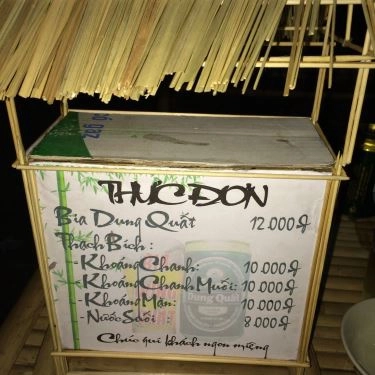 THỰC ĐƠN
Bia Dung Quất 12.000đ
Thạch Bích :
- Khoáng Chanh: 10.000đ
- Khoáng Chanh Muối: 10.000đ
- Khoáng Mặn: 10.000đ
- Nước Suối : 8.000đ
Dung Quất
Chúc quí khách ngon miệng